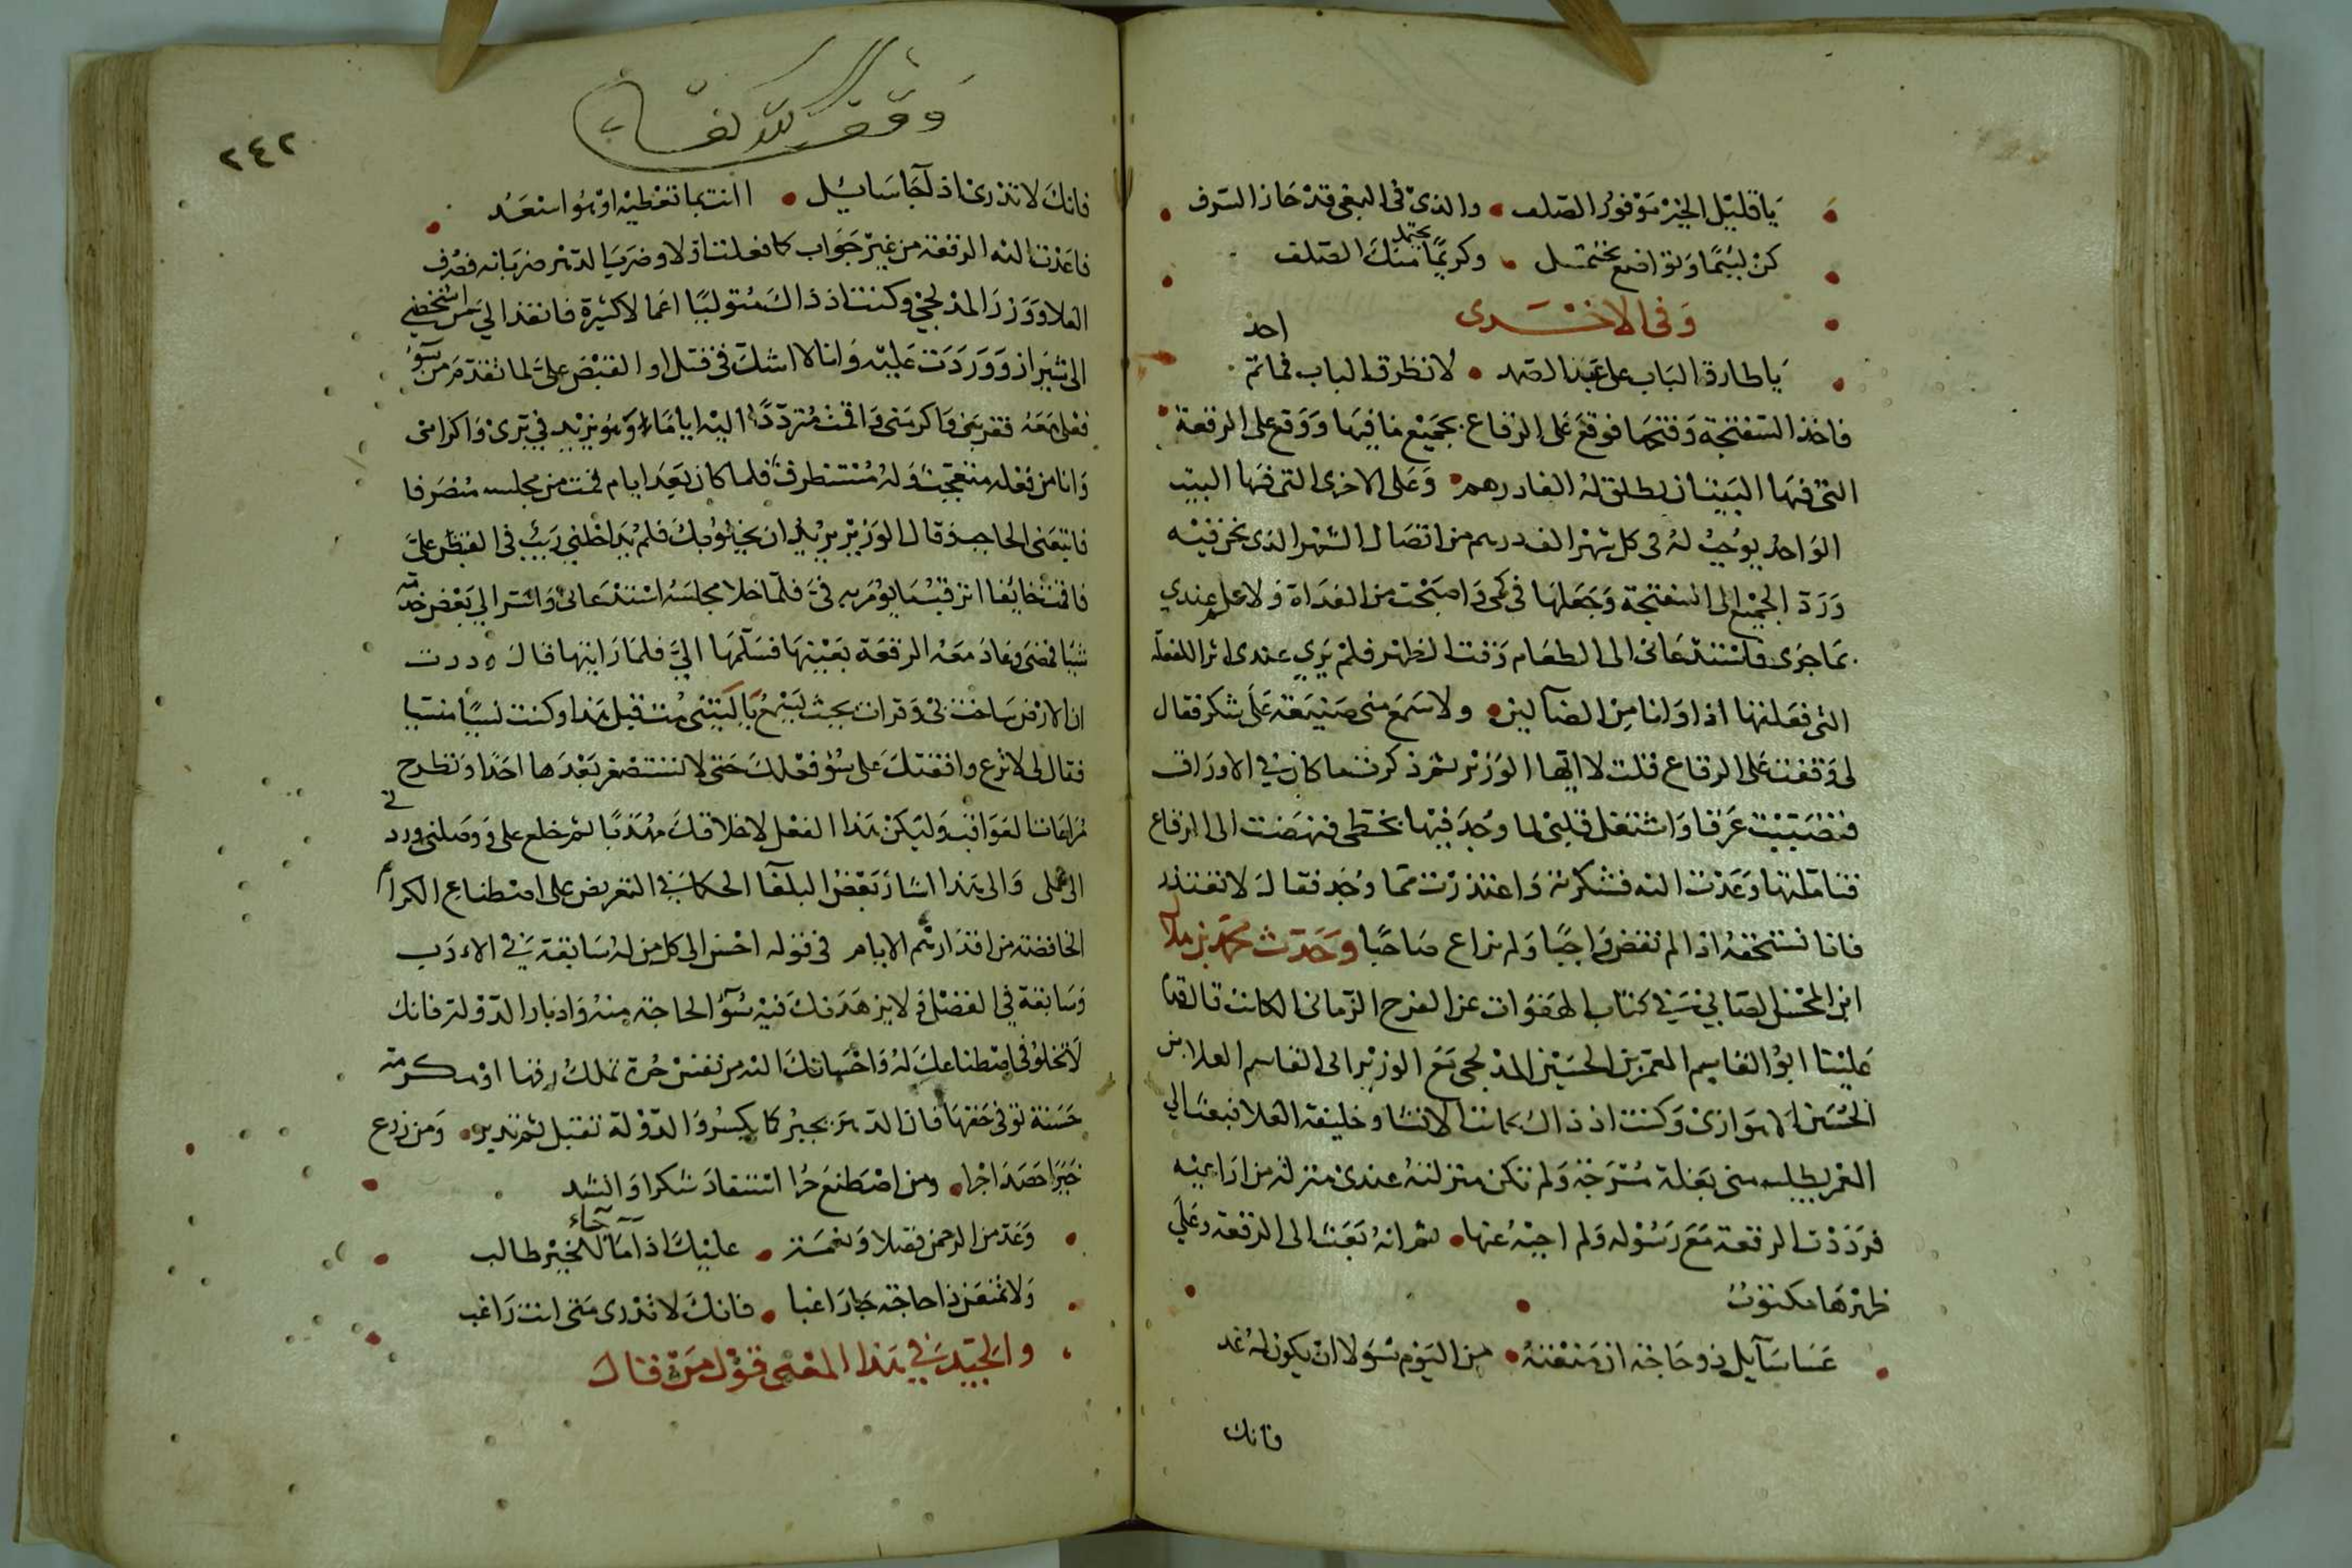 يا قليل الخير موفور الصلف • والذي في البغي قد حاز السرف
كن لئيما وتواضع تحتمل • وكريما يحتمل منك الصلف
وفي الاخرى
يا طارق الباب على عبد الصمد • لا تطرق الباب فما ثم احد
فاخذ السفتجة وفتحها فوقع على الرقاع بجميع ما فيها ووقع على الرقعة
التي فيها البيتان يطلق له الف درهم • وعلى الاخرى التي فيها البيت
الواحد يوجب له في كل شهر الف درهم من اتصال الشهر الذي نحن فيه
ورد الجميع الى السفتجة وجعلها في كمي واصبحت من الغداة ولا علم عندي
بما جرى فاستدعاني الى الطعام وقت الظهر فلم يري عندي اثرا للفعلة
التي فعلتها اذا وانا من الضالين • ولا سمع مني صنيعة على شكر فقال
لي وقفت على الرقاع قلت لا ايها الوزير ثم ذكرت ما كان في الاوراق
فتصببت عرقا واشتغل قلبي لما وجد فيها بخطي فنهضت الى الرقاع
فتاملتها وعدت اليه فشكرته واعتذرت مما وجد فقال لا تعتذر
فانا نستحقه اذا لم نقض واجبا ولم نراع صاحبا وحدث محمد بن هلال
ابن المحسن الصابي في كتاب الهفوات عن الفرج الزماني الكاتب قال قدم
علينا ابو القاسم المعمر بن الحسين المدلجي مع الوزير ابي القاسم العلا بن
الحسن الاهوازي وكنت اذ ذاك كاتب الانشا وخليفة العلا فبعث الي
المعمر يطلب مني بغلة مسرجة ولم تكن منزلته عندي منزلة من اراعيه
فرددت الرقعة مع رسوله ولم اجبه عنها • ثم انه بعث الي الرقعة وعلى
ظهرها مكتوب
عسا سآيل ذو حاجة ان منعته • من اليوم سؤلا ان يكون له غد
فانك
وقف لله تعالى
٢٤٢
فانك لا تدري اذا جا سايل • اانت بما تعطيه او هو اسعد
فاعدت اليه الرقعة من غير جواب كما فعلت اولا وضرب الدهر ضرباته فصرف
العلا ووزر المدلجي وكنت اذ ذاك متوليا اعمالا كثيرة فانفذ الي من اشخصني
الى شيراز ووردت عليه وانا لا اشك في قتل او القبض علي لما تقدم من سوء
فعلي معه فقربني واكرمني واقمت مترددا اليه اياما وهو يزيد في بري واكرامي
وانا من فعله متعجب وله مستطرف فلما كان بعد ايام قمت من مجلسه منصرفا
فاتبعني الحاجب وقال الوزير يريد ان يخلو بك فلم يداخلني ريب في القبض علي
فاقمت خايفا اترقب ما يومر به في فلما خلا مجلسه استدعاني واشار الي بعض خدمه
شيا فمضى وعاد معه الرقعة بعينها فسلمها الي فلما رايتها قال وددت
ان الارض ساخت بي وقرات بحيث يسمع يا ليتني مت قبل هذا وكنت نسيا منسيا
فقال لي لا ترع واقفتك على سوء فعلك حتى لا تستصغر بعدها احدا وتطرح
مراعات العواقب وليكن هذا الفعل لاخلاقك مهذبا ثم خلع علي ووصلني وردني
الى عملي والى هذا اشار بعض البلغا الحكما في التعريض على اصطناع الكرام
الخافضة من اقدارهم الايام في قوله احسن الى كل من له سابقة في الادب
وسابقة في الفضل ولا يزهدنك فيه سوء الحاجة منه وادبار الدولة فانك
لا تخلو في اصطناعك له واحسانك اليه من نفس حرة تملك رقها او مكرمة
حسنة توفى حقها فان الدهر يجبر كما يكسر والدولة تقبل ثم تدبر • ومن زرع
خيرا حصد اجرا • ومن اصطنع حرا استفاد شكرا وانشد
وعد من الرحمن فضلا ونعمة • عليك اذا ما جاء للخير طالب
ولا تمنعن ذا حاجة جا راغبا • فانك لا تدري متى انت راغب
والجيد في هذا المعنى قول من قال